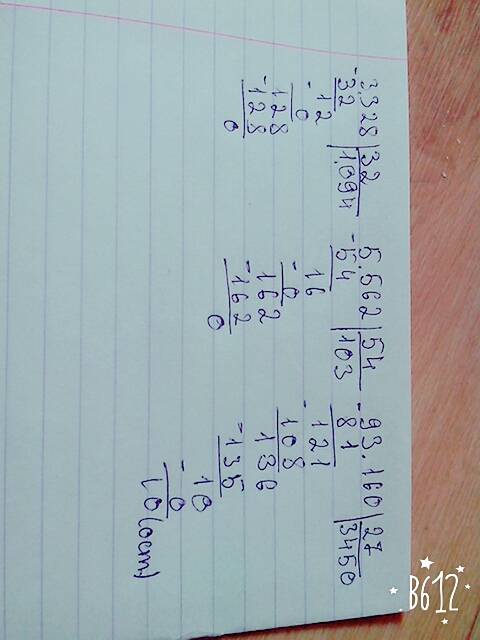 3.328 | 32
-32 | 1,094
12
- 0
128
-128
0
5.562 | 54
-54 | 103
16
- 0
162
-162
0
93.160 | 27
-81 | 3450
121
-108
136
-135
10
- 0
10
B612